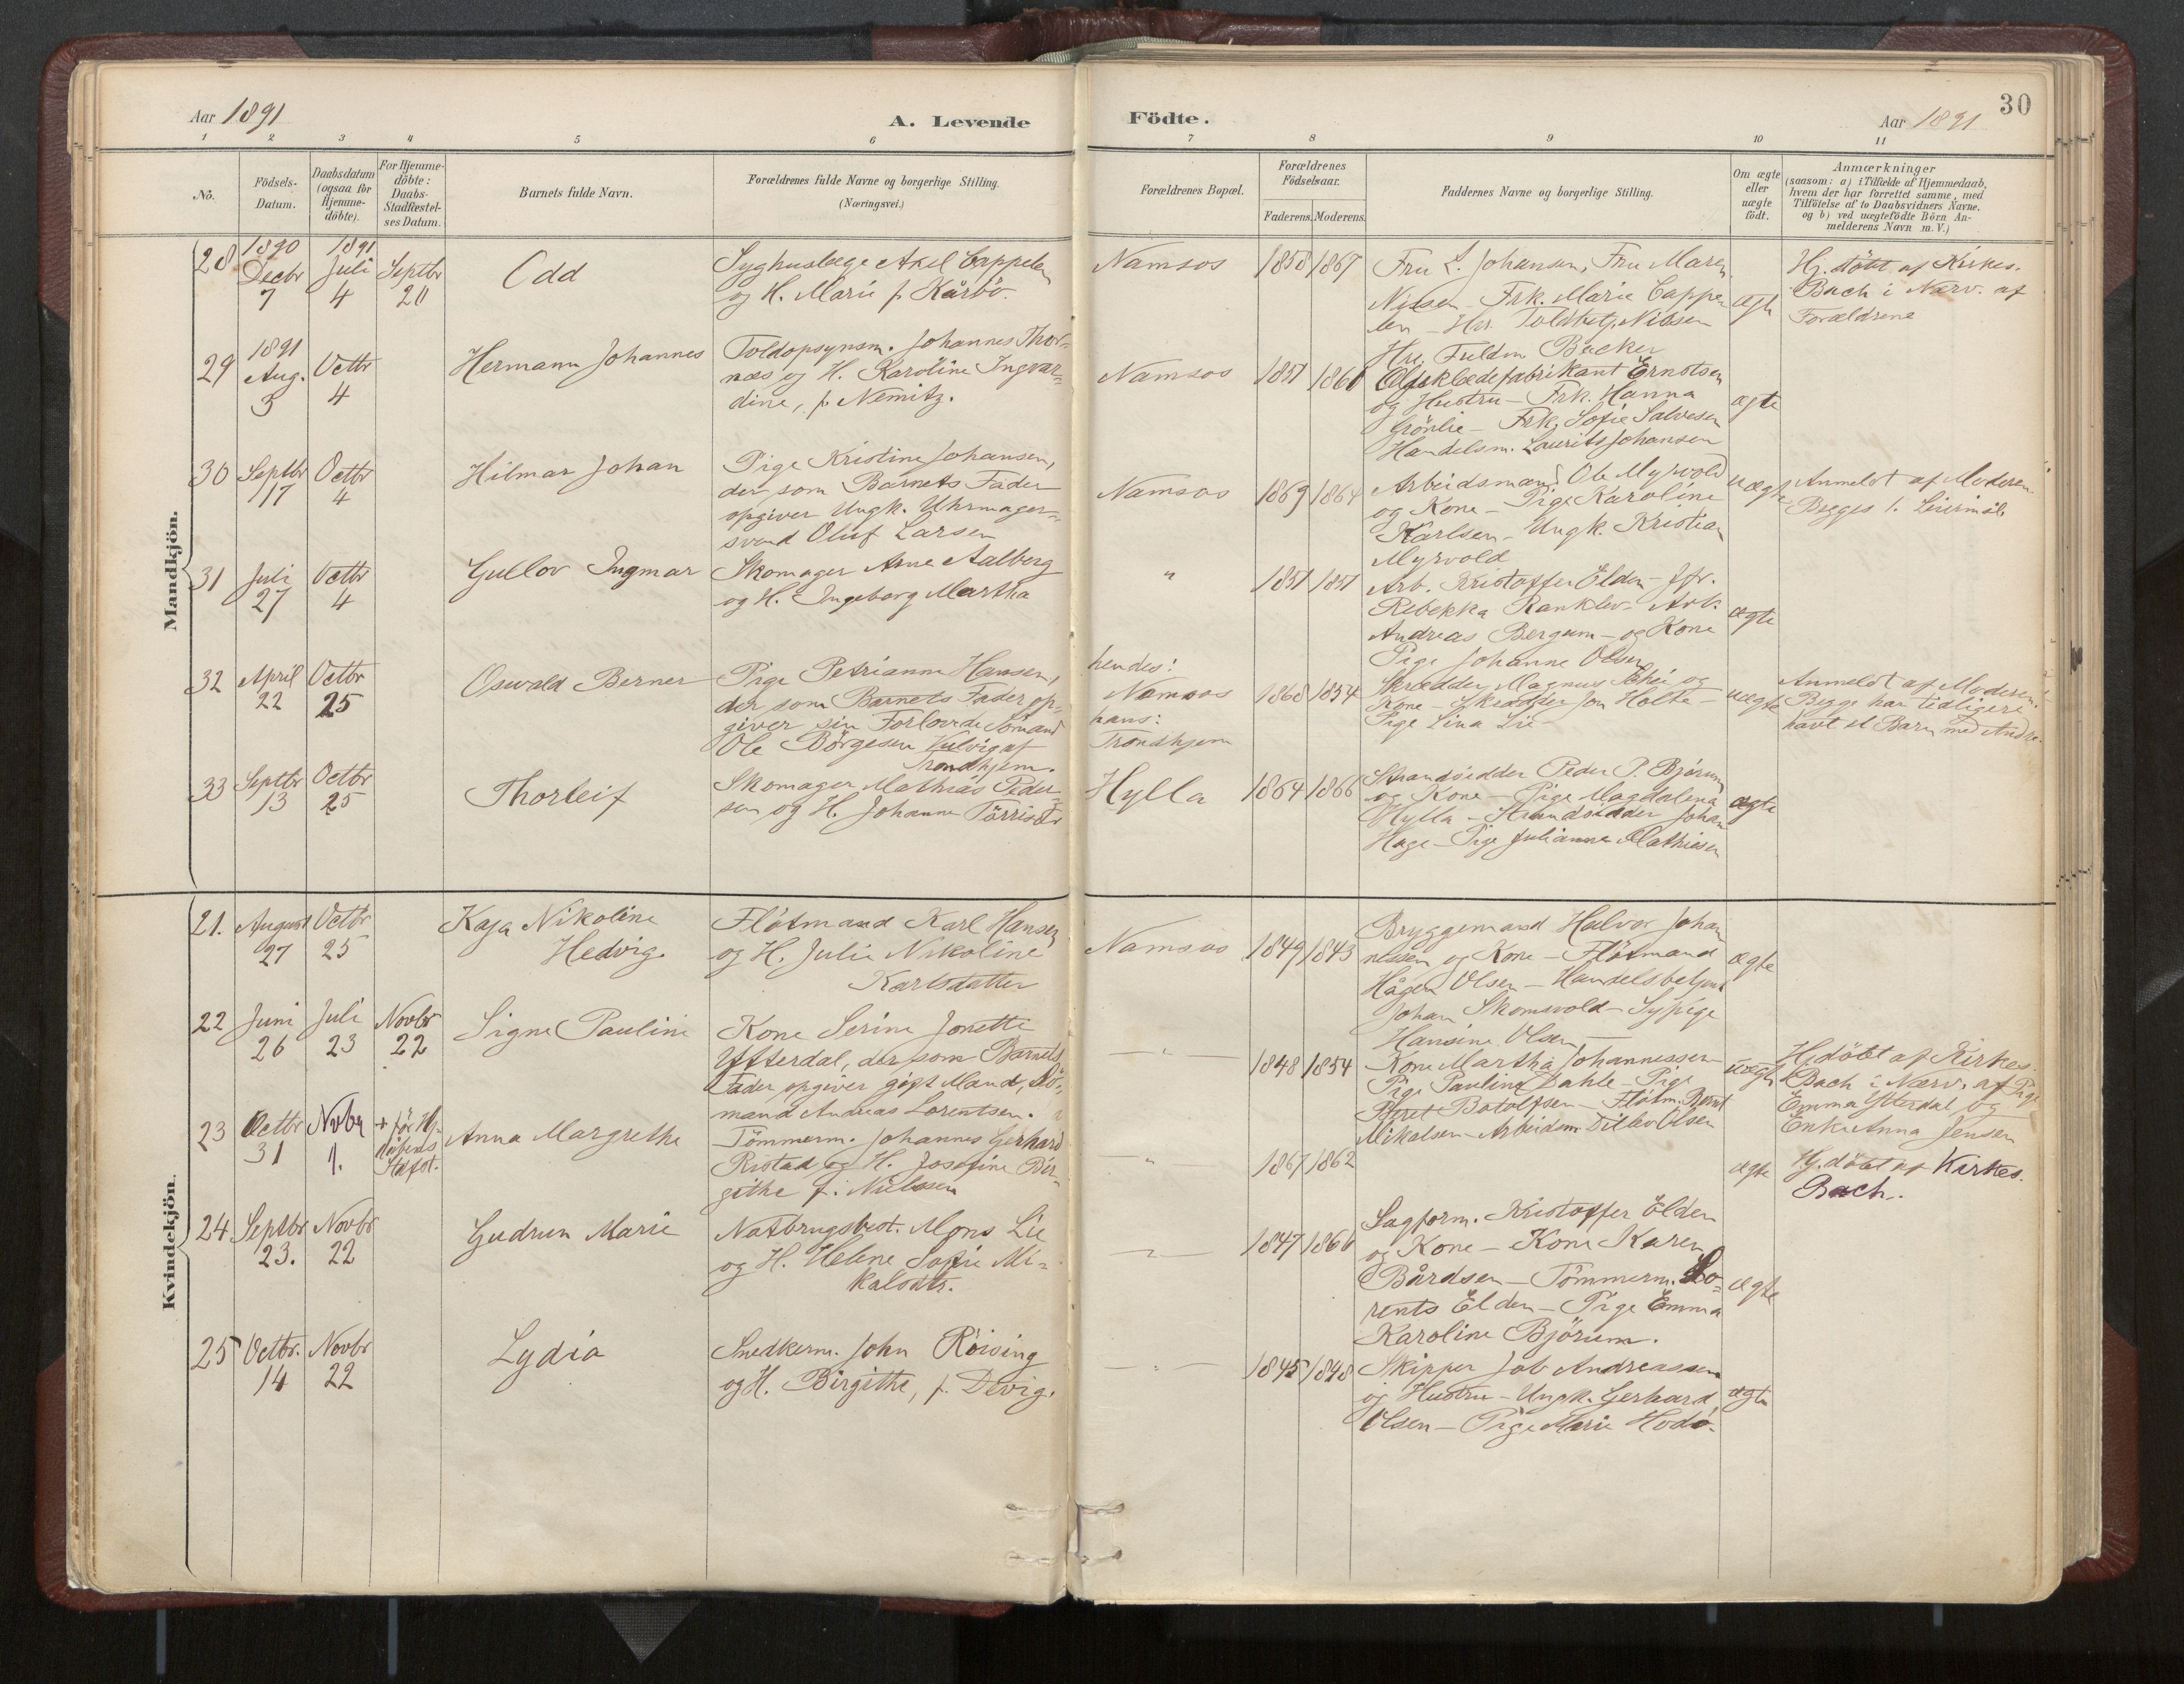 30
Aar 1891
A. Levende
Födte.
Aar 1891
1 2 3 4 5 6 7 8 9 10 11
No.
Födsels-
Datum.
Daabsdatum
(ogsaa for
Hjemme-
döbte).
For Hjemme-
döbte:
Daabs-
Stadfæstel-
ses Datum.
Barnets fulde Navn.
Forældrenes fulde Navne og borgerlige Stilling.
(Næringsvei.)
Forældrenes Bopæl.
Forældrenes
Födselsaar.
Faderens. Moderens.
Faddernes Navne og borgerlige Stilling.
Om ægte
eller
uægte
födt.
Anmærkninger
(saasom: a) i Tilfælde af Hjemmedaab,
hvem der har forrettet samme, med
Tilföielse af to Daabsvidners Navne.
og b) ved uægtefödte Börn An-
melderens Navn m. V.)
Mandkjön.
28
1890
Decbr
7
1891
Juli
4
Septbr
20
Odd
Syghuslæge Axel Cappelen
og H. Marie f. Kårbö.
Namsos
1858
1867
Fru L. Johansen, Fru Maren
Nissen - Frk. Marie Cappe-
len - Hrr. Toldbetj. Nissen
Hrr. Fuldm. Backer
ægte
Hj. döbt af Kirkes.
Bach i Nærv. af
Forældrene
29
1891
Aug.
3
Octbr
4
Hermann Johannes
Toldopsynsm. Johannes Thor-
næs og H. Karoline Ingvar-
dine, f. Nemitz.
Namsos
1857
1860
Oljeklædefabrikant Ernstsen
og Hustru - Frk. Hanna
Grönlie - Frk. Sofie Salvesen
Handelsm. Laurits Johansen
ægte
30
Septbr
17
Octbr
4
Hilmar Johan
Pige Kristine Johansen,
der som Barnets Fader
opgiver Ungk. Uhrmager-
svend Oluf Larsen
Namsos
1869
1864
Arbeidsmand Ole Myrvold
og Kone - Pige Karoline
Karlsen - Ungk. Kristian
Myrvold
uægte
Anmeldt af Moderen.
Begges 1. Leiermål.
31
Juli
27
Octbr
4
Gullov Ingmar
Skomager Arne Aalberg
og H. Ingeborg Martha
"
1851
1857
Arb. Kristoffer Elden - Jfr.
Rebekka Ranklev - Arb.
Andreas Bergum - og Kone
Pige Johanne Olsen
ægte
32
April
22
Octbr
25
Oswald Berner
Pige Petrianna Hansen,
der som Barnets Fader op-
giver sin Forlovede Sömand
Ole Börgesen Kulvig af
Trondhjem.
hendes:
Namsos
hans:
Trondhjem
1868
1854
Skrædder Magnus Schei og
Kone - Skrædder Jon Holte -
Pige Lina Lie
uægte
Anmeldt af Moderen.
Begge har tidligere
havt et Barn med Andre.
33
Septbr
13
Octbr
25
Thorleif
Skomager Mathias Peder-
sen og H. Johanne Törrisdtr
Hylla
1864
1866
Strandsidder Peder P. Björum
og Kone - Pige Magdalena
Hylla - Strandsidder Johan
Hage - Pige Julianna Mathiesen
ægte
Kvindekjön.
21.
August
27
Octbr
25
Kaja Nikoline
Hedvig.
Flötmand Karl Hansen
og H. Julie Nikoline
Karlsdatter
Namsos
1849
1843
Bryggemand Halvor Johan-
nesen og Kone - Flötmand
Hågen Olsen - Handelsbetjent
Johan Skomsvold - Sypige
Hansine Olsen -
ægte
22
Juni
26
Juli
23
Novbr
22
Signe Pauline
Kone Serine Jonette
Ytterdal, der som Barnets
Fader opgiver gift Mand, Sö-
mand Andreas Lorentsen.
- " -
1848
1854
Kone Martha Johannessen
Pige Pauline Dahle - Pige
Beret Botolfsen - Flötm. Bernt
Mikalsen - Arbeidsm. Ditlev Olsen
uægte
Hj. döbt af Kirkes.
Bach i Nærv. af Pige
Emma Ytterdal og
Enke Anna Jensen
23
Octbr
31
Novbr
1.
+ för Hj-
dåbens
Stafst.
Anna Margrethe
Tömmerm. Johannes Gerhard
Ristad og H. Josefine Bir-
githe f. Nielssen
- " -
1867
1862
ægte
Hj. döbt af Kirkes.
Bach.
24
Septbr
23.
Novbr
22
Gudrun Marie
Notbrugsbest. Mons Lie
og H. Helene Sofie Mi-
kalsdtr.
- " -
1847
1860
Sagform. Kristoffer Elden
og Kone - Kone Karen
Bårdsen - Tömmerm. Lo-
rents Elden - Pige Emma
Karoline Björum.
ægte
25
Octbr.
14
Novbr
22
Lydia
Snedkerm. John Röising
og H. Birgithe, f. Devig.
- " -
1845
1848
Skipper Job Andreassen
og Hustru - Ungk. Gerhard
Olsen - Pige Marie Hodö.
ægte